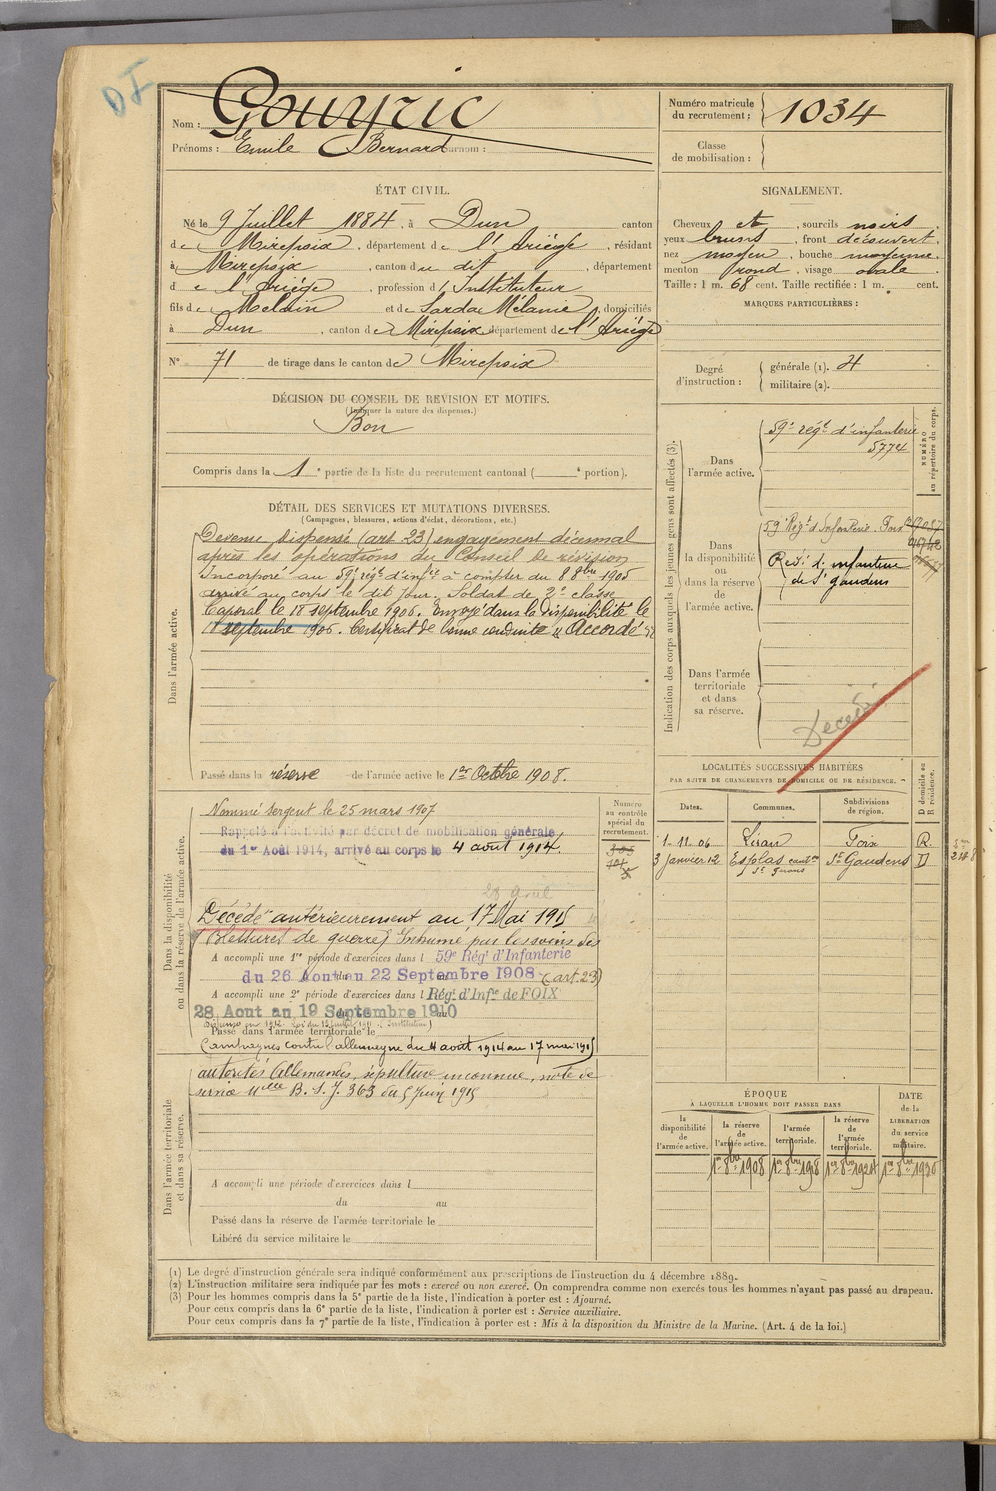 DF
Nom : Gouyric
Prénoms : Emile Bernard Surnom :
Numéro matricule
du recrutement : 1034
Classe
de mobilisation :
ÉTAT CIVIL.
Né le 9 Juillet 1884, à Dun canton
de Mirepoix, département de l'Ariège, résidant
à Mirepoix, canton du dit, département
de l'Ariège, profession d'Instituteur
fils de Melain et de Sarda Mélanie, domiciliés
à Dun, canton de Mirepoix département de l'Ariège
N° 71 de tirage dans le canton de Mirepoix
SIGNALEMENT.
Cheveux et, sourcils noirs
yeux bruns, front découvert.
nez moyen, bouche moyenne.
menton rond, visage ovale
Taille : 1 m. 68 cent. Taille rectifiée : 1 m. cent.
MARQUES PARTICULIÈRES :
Degré
d'instruction :
générale (1). 4
militaire (2).
DÉCISION DU CONSEIL DE REVISION ET MOTIFS.
(Indiquer la nature des dispenses.)
Bon
Compris dans la 1e partie de la liste du recrutement cantonal ( e portion).
DÉTAIL DES SERVICES ET MUTATIONS DIVERSES.
(Campagnes, blessures, actions d'éclat, décorations, etc.)
Dans l'armée active.
Devenu dispensé (art 23) engagement décennal
après les opérations du Conseil de révision
Incorporé au 59e régt d'infie à compter du 8 8bre 1905
arrivé au corps le dit jour. Soldat de 2e classe
Caporal le 18 septembre 1906. Envoyé dans la disponibilité le
18 septembre 1906. Certificat de bonne conduite "Accordé"
Passé dans la réserve de l'armée active le 1er Octobre 1908.
Indication des corps auxquels les jeunes gens sont affectés (3).
NUMÉRO
au répertoire du corps.
Dans
l'armée active.
59e régt d'infanterie
5774
Dans
la disponibilité
ou
dans la réserve
de
l'armée active.
59e Régt d'Infanterie. Foix
Regt d'infanterie
de St Gaudens
Dans l'armée
territoriale
et dans
sa réserve.
Décédé
LOCALITÉS SUCCESSIVES HABITÉES
PAR SUITE DE CHANGEMENTS DE DOMICILE OU DE RÉSIDENCE.
Dates.
Communes.
Subdivisions
de région.
D domicile ou
R résidence.
1-11.06 Léran Foix R.
3 Janvier 12 Esplas canton St Gaudens D
St Girons
Dans la disponibilité
ou dans la réserve de l'armée active.
Numéro
au contrôle
spécial du
recrutement.
Nommé sergent le 25 mars 1907
Rappelé à l'activité par décret de mobilisation générale
du 1er Août 1914, arrivé au corps le 4 août 1914.
28 Avril
Décédé antérieurement au 17 Mai 1915
(Blessures de guerre) Inhumé par les soins des
A accompli une 1re période d'exercices dans l 59e Régt d'Infanterie
du 26 Aout au 22 Septembre 1908 (art. 23)
A accompli une 2e période d'exercices dans l Régt d'Infie de FOIX
28 Aout au 19 Septembre 1910
Passé dans l'armée territoriale le
Campagnes contre l'allemagne du 4 août 1914 au 17 mai 1915
Dans l'armée territoriale
et dans sa réserve.
autorités Allemandes, sépulture inconnue, note de
service Mlle B. S. J. 363 du 5 Juin 1915
A accompli une période d'exercices dans l
du au
Passé dans la réserve de l'armée territoriale le
Libéré du service militaire le
ÉPOQUE
À LAQUELLE L'HOMME DOIT PASSER DANS
la
disponibilité
de
l'armée active.
la réserve
de
l'armée active.
l'armée
territoriale.
la réserve
de
l'armée
territoriale.
DATE
de la
LIBÉRATION
du service
militaire.
1er 8bre 1908 1er 8bre 1918 1er 8bre 1924 1er 8bre 1930
(1) Le degré d'instruction générale sera indiqué conformément aux prescriptions de l'instruction du 4 décembre 1889.
(2) L'instruction militaire sera indiquée par les mots : exercé ou non exercé. On comprendra comme non exercés tous les hommes n'ayant pas passé au drapeau.
(3) Pour les hommes compris dans la 5e partie de la liste, l'indication à porter est : Ajourné.
Pour ceux compris dans la 6e partie de la liste, l'indication à porter est : Service auxiliaire.
Pour ceux compris dans la 7e partie de la liste, l'indication à porter est : Mis à la disposition du Ministre de la Marine. (Art. 4 de la loi.)